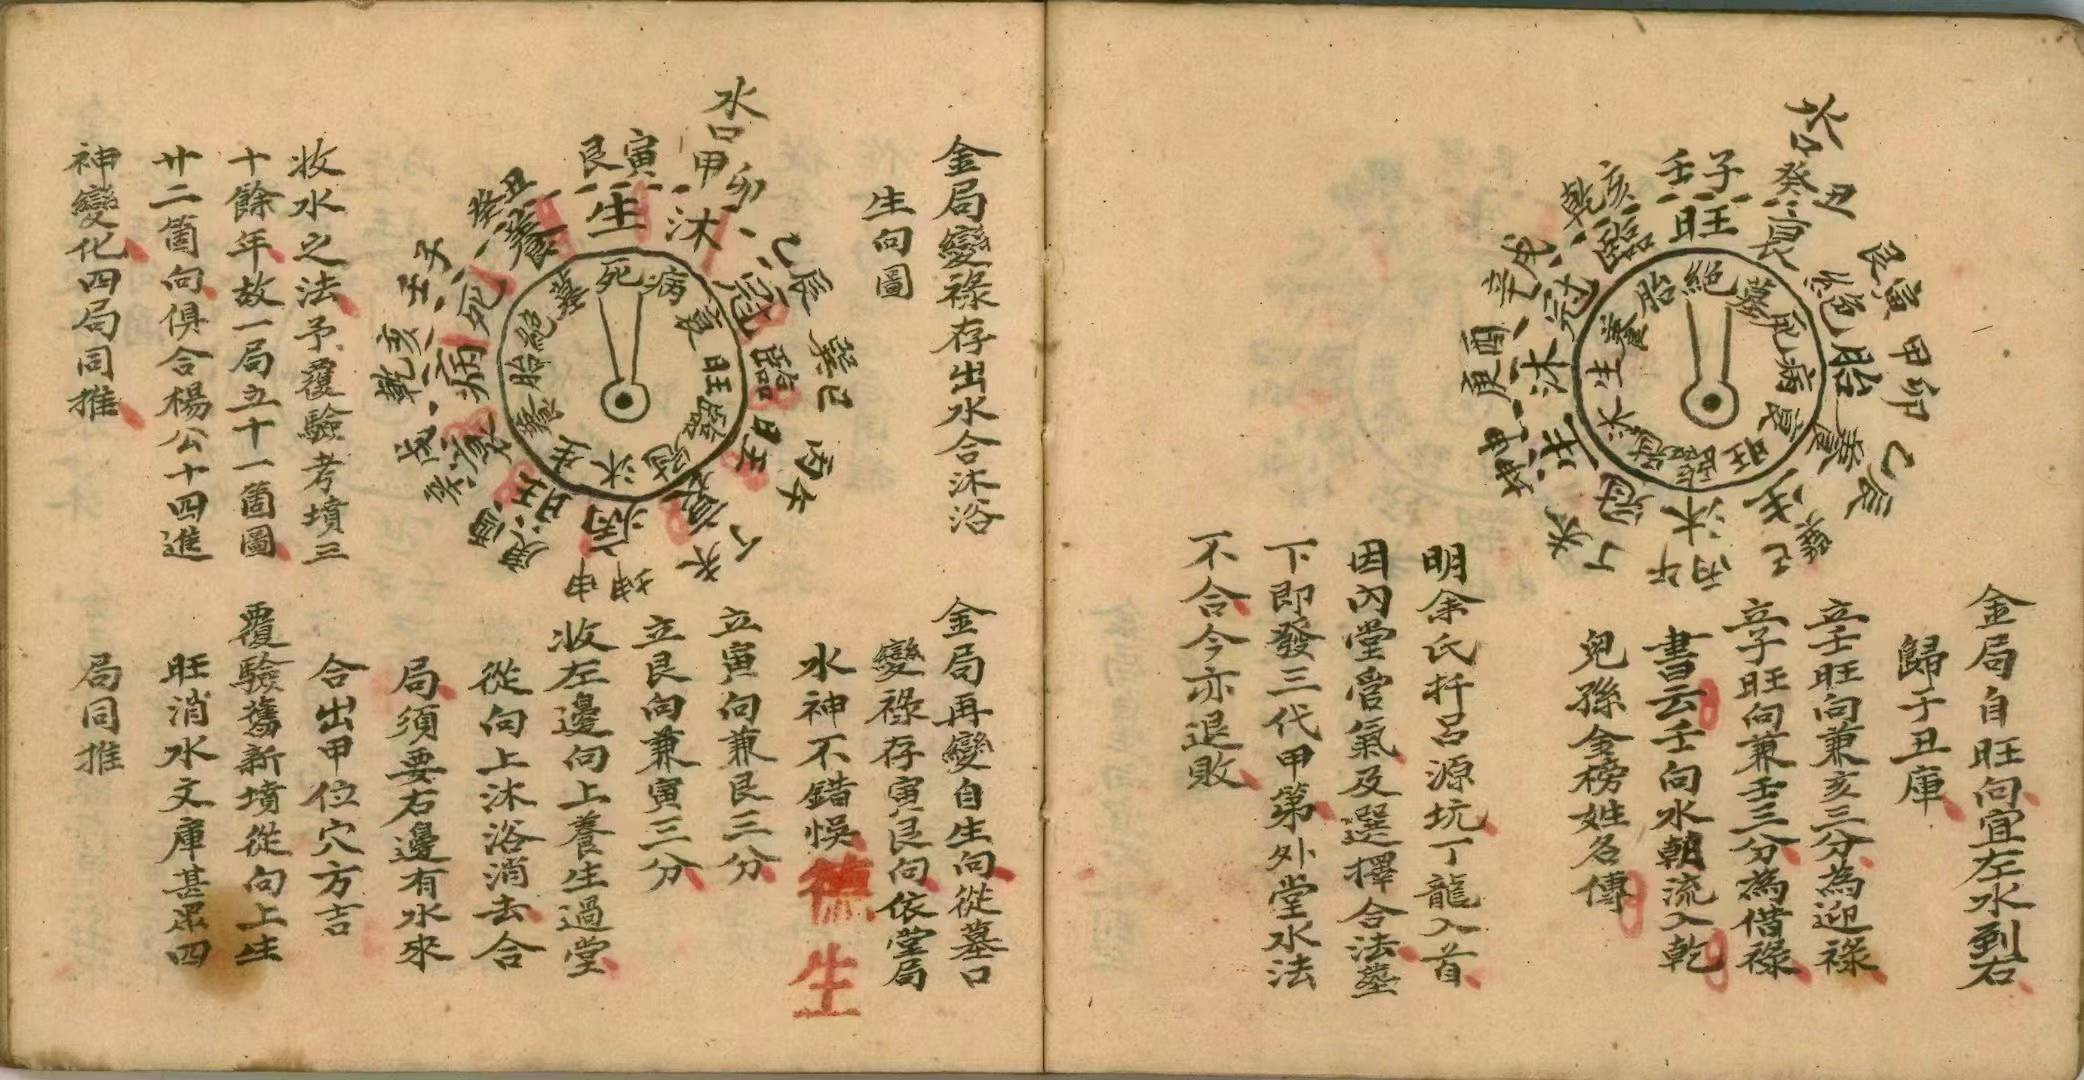 水口
壬子
癸丑
艮寅
甲卯
乙辰
巽巳
丙午
丁未
坤申
庚酉
辛戌
乾亥
旺
衰
絕
胎
養
生
沐
冠
生
沐
冠
臨
絕
墓
死
病
衰
旺
臨
冠
沐
生
養
胎
金局自旺向宜左水到右
歸于丑庫
立壬旺向兼亥三分為迎祿
立子旺向兼壬三分為借祿
書云壬向水朝流入乾
兒孫金榜姓名傳
明余氏扦呂源坑丁龍入首
因內堂官氣及選擇合法塟
下即發三代甲第外堂水法
不合今亦退敗
金局變祿存出水合沐浴
生向圖
水口
艮寅
甲卯
乙辰
巽巳
丙午
丁未
坤申
庚酉
辛戌
乾亥
壬子
癸丑
生
沐
冠
臨
旺
衰
病
旺
衰
病
死
養
死
病
衰
旺
臨
冠
沐
生
養
胎
絕
墓
金局再變自生向從墓口
變祿存寅艮向依堂局
水神不錯悞
德生
立寅向兼艮三分
立艮向兼寅三分
收左邊向上養生過堂
從向上沐浴消去合
局須要右邊有水來
合出甲位穴方吉
收水之法予覆驗考墳三
十餘年故一局立十一箇圖
廿二箇向俱合楊公十四進
神變化四局同推
覆驗舊新墳從向上生
旺消水文庫甚眾四
局同推